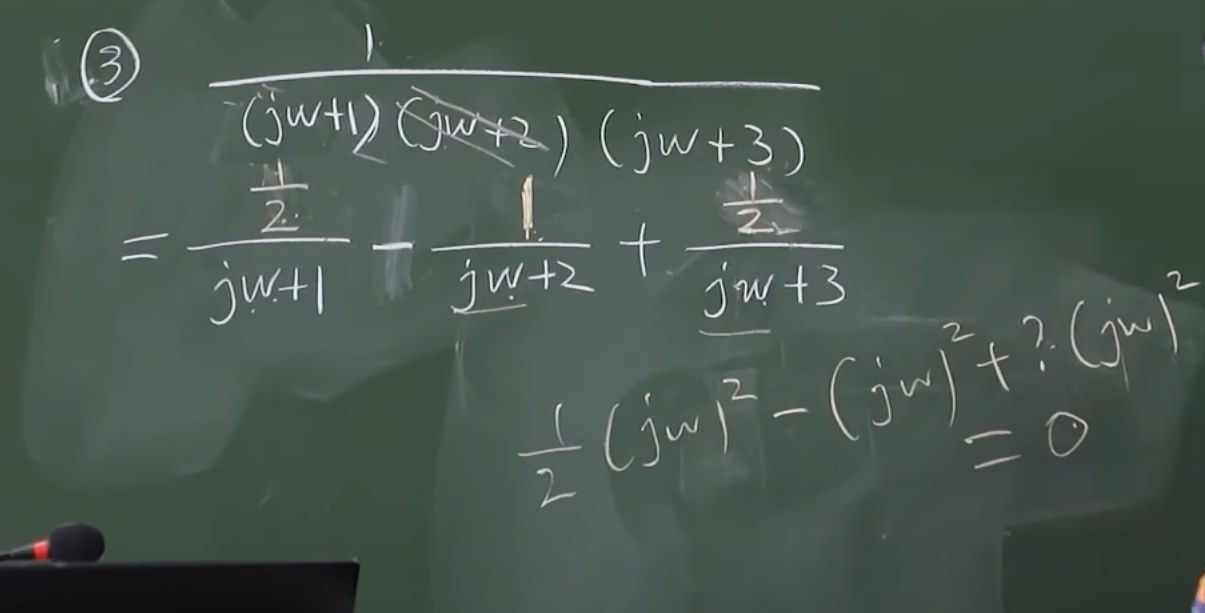 ③ 1
(jw+1)(jw+2)(jw+3)
= 1/2 / jw+1 - 1 / jw+2 + 1/2 / jw+3
1/2 (jw)² - (jw)² + ? (jw)²
= 0